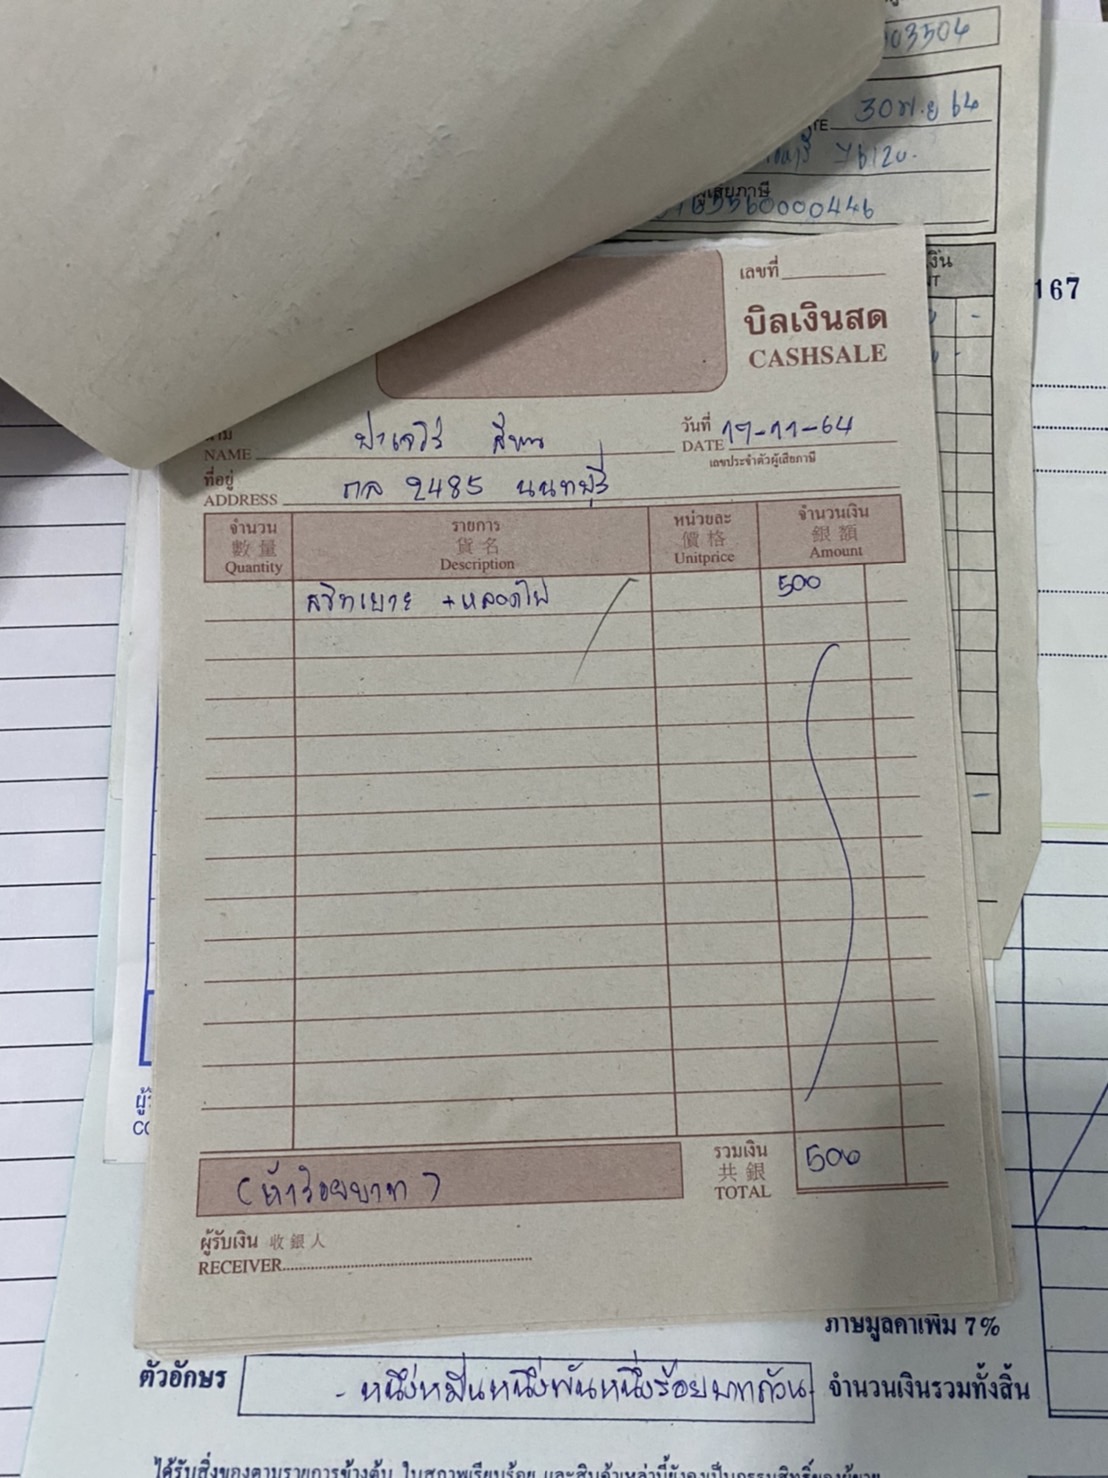 03504
30 พ.ย 64
TE
76120.
ผู้เสียภาษี
5560000446
167
เลขที่
บิลเงินสด
CASHSALE
NAME
วันที่ 17-11-64
DATE
เลขประจำตัวผู้เสียภาษี
ที่อยู่
ADDRESS 2485 นนทบุรี
จำนวน รายการ หน่วยละ จำนวนเงิน
數量 貨名 價格 銀額
Quantity Description Unitprice Amount
สวิทเบาะ +หลอดไฟ 500
รวมเงิน
共銀
TOTAL 500
(ห้าร้อยบาท)
ผู้รับเงิน 收銀人
RECEIVER
ภาษีมูลค่าเพิ่ม 7%
ตัวอักษร - หนึ่งหมื่นหนึ่งพันหนึ่งร้อยบาทถ้วน - จำนวนเงินรวมทั้งสิ้น
ได้รับสิ่งของตามรายการข้างต้น ในสภาพเรียบร้อย และสินค้าเหล่านี้ยังคงเป็นกรรมสิทธิ์ของผู้ขาย